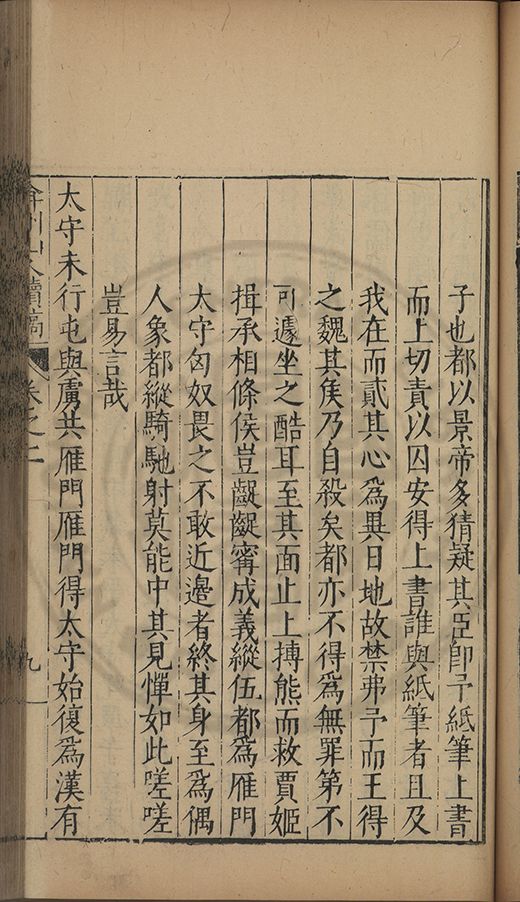 子也都以景帝多猜疑其臣卽予紙筆上書
而上切責以囚安得上書誰與紙筆者且及
我在而貳其心爲異日地故禁弗予而王得
之魏其矦乃自殺矣都亦不得爲無罪第不
可遽坐之酷耳至其面止上搏熊而救賈姬
揖承相條侯豈齪齪甯成義縱伍都爲雁門
太守匈奴畏之不敢近邉者終其身至爲偶
人象都縱騎馳射莫能中其見憚如此嗟嗟
豈易言哉
太守未行屯與虜共雁門雁門得太守始復爲漢有
弇州山人續稿
卷之二
九